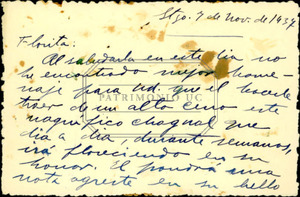 Stgo. 7 de Nov. de 1937
Florita:
Al saludarla en este día no
he encontrado mejor home-
naje para Ud. que el hacerle
traer de un alto cerro este
PATRIMONIO UC
magnífico chagual que
día a día, durante semanas,
irá floreciendo en su
honor. El pondrá una
nota agreste en su bello